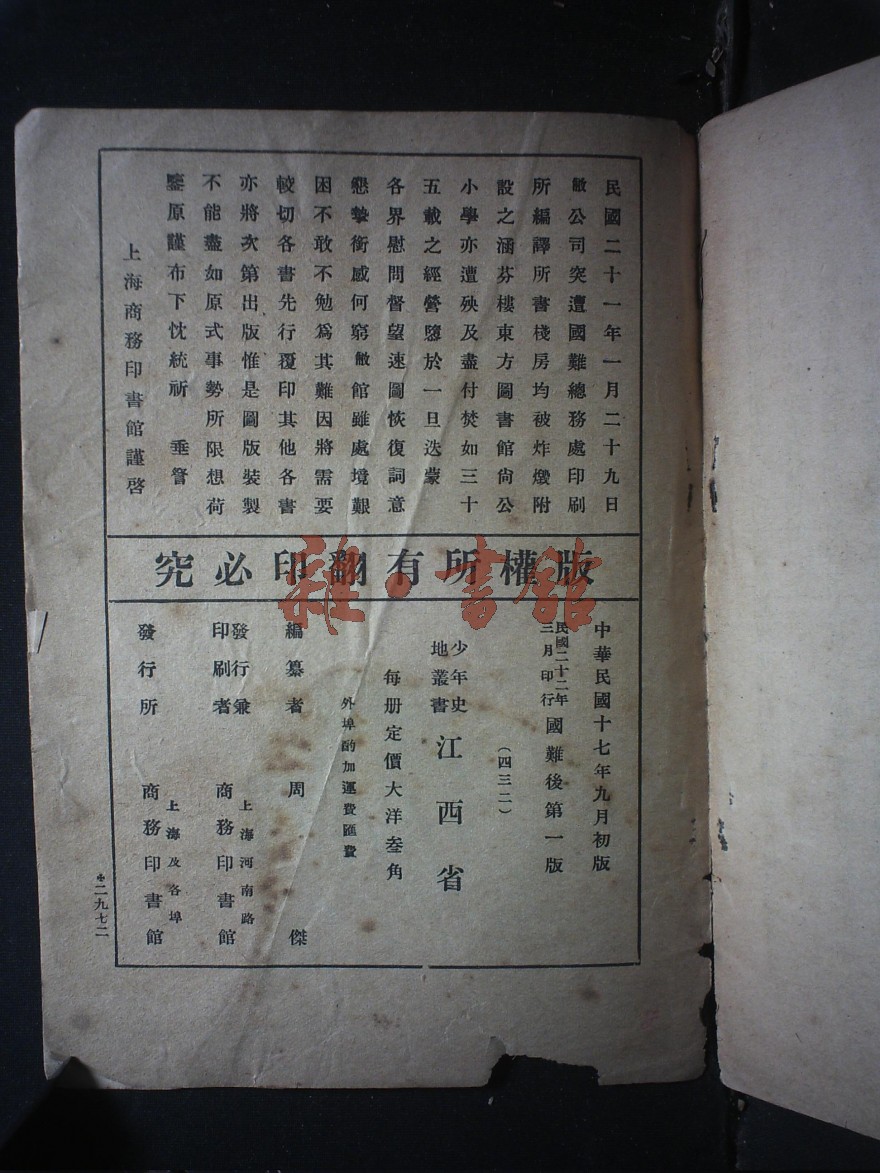 民國二十一年一月二十九日
敝公司突遭國難總務處印刷
所編譯所書棧房均被炸燬附
設之涵芬樓東方圖書館尙公
小學亦遭殃及盡付焚如三十
五載之經營隳於一旦迭蒙
各界慰問督望速圖恢復詞意
懇摯銜感何窮敝館雖處境艱
困不敢不勉爲其難因將需要
較切各書先行覆印其他各書
亦將次第出版惟是圖版裝製
不能盡如原式事勢所限想荷
鑒原謹布下忱統祈 垂詧
上海商務印書館謹啓
版權所有翻印必究
中華民國十七年九月初版
民國二十二年三月印行國難後第一版
(四三二)
少年史地叢書江西省
每册定價大洋叁角
外埠酌加運費匯費
編纂者 周傑
發行兼印刷者 上海河南路商務印書館
發行所 上海及各埠商務印書館
二九七二
雜·書館